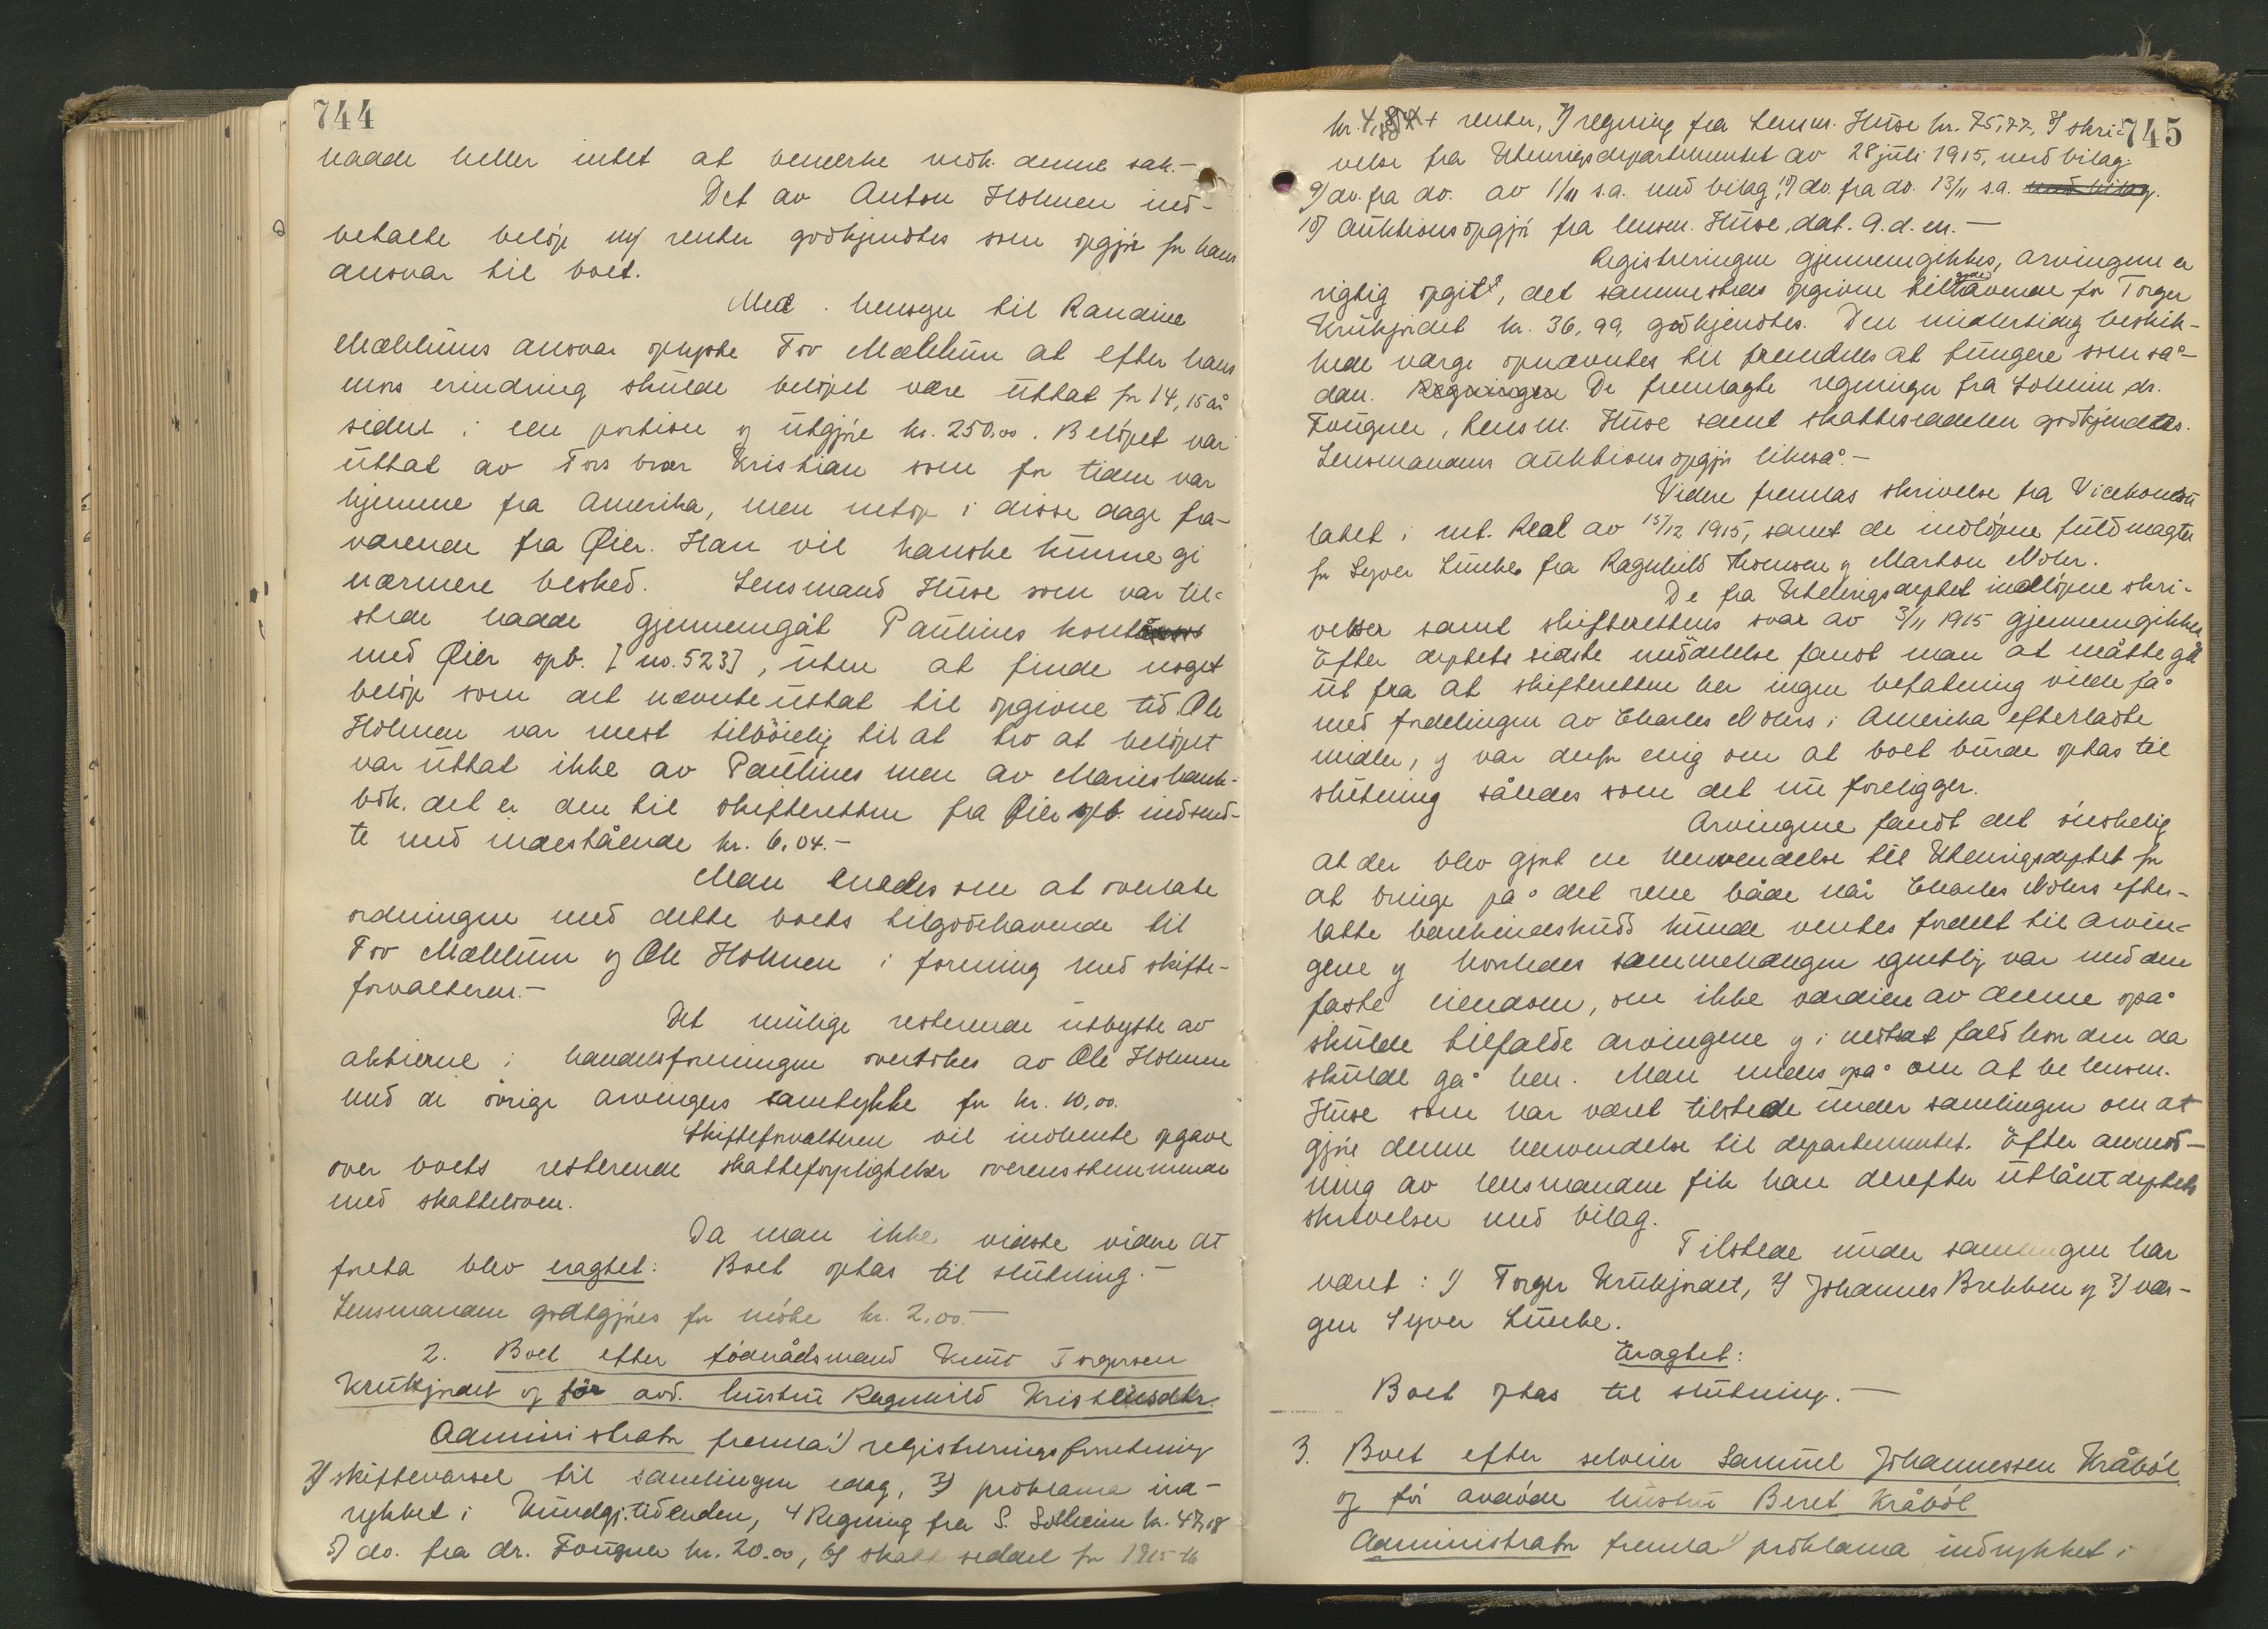 744
hadde heller intet at bemerke vedk. denne sak.-
Det av Anton Holmen ind-
betalte beløp m/ renter godkjendtes som opgjør for hans
ansvar til boet.
Med hensyn til Randine
Mæhlums ansvar oplyste Tov Mæhlum at efter hans
mors erindring skulde beløpet være uttat for 14, 15 år
siden i een portion og utgjøre kr. 250,00. Beløpet var
uttat av Tors bror Kristian som for tiden var
hjemme fra Amerika, men netop i disse dage fra-
værende fra Øier. Han vil kanske kunne gi
nærmere besked. Lensmand Huse som var til-
stede hadde gjennemgåt Paulines konto
med Øier spb. [no. 523], uten at finde noget
beløp som det nævnte uttat til opgivne tid. Ole
Holmen var mest tilbøielig til at tro at beløpet
var uttat ikke av Paulines men av Maries bank-
bok. det er den til skifteretten fra Øier spb. indsend-
te med indestående kr. 6,04.-
Man enedes om at overlate
ordningen med dette boets tilgodehavende til
Tov Mæhlum og Ole Holmen i forening med skifte-
forvalteren.-
Det mulige resterende utbytte av
aktierne i handelsforeningen overtokes av Ole Holmen
med de øvrige arvingers samtykke for kr. 10,00.
Skifteforvalteren vil indhente opgave
over boets resterende skatteforpligtelser overensstemmende
med skatteloven.
Da man ikke vidste videre at
foreta blev eragtet: Boet optas til slutning.-
Lensmanden godtgjøres for møte kr. 2,00.-
2. Boet efter føderådsmand Knut Torgersen
Krukjordet og før avd. hustru Ragnhild Kristensdtr.
Administrator fremla 1) registreringsforretning
2) skiftevarsel til samlingen idag, 3) proklama ind-
rykket i Kundgj.tidenden, 4 Regning fra S. Solheim kr. 47,18
5) do. fra dr. Fougner kr. 20.00, 6) skatteseddel for 1915-16
745
kr. + renter, 7) regning fra Lensm. Huse kr. 75,77, 8) skri-
velse fra Utenrigsdepartementet av 28 juli 1915, med bilag.
9) do. fra do. av 1/11 s.a. med bilag, do. fra do. 13/11 s.a. med bilag.
10) Auktionsopgjør fra lensm. Huse, dat. 9.d.m.-
Registreringen gjennemgikkes, arvingerne er
rigtig opgit, det sammesteds opgivne tilgodehavende for Torger
Krukjordet kr. 36,99, godkjendtes. Den midlertidig beskik-
kede værge opnævntes til fremdeles at fungere som så-
dan. Regningen De fremlagte regninger fra Solheim, dr.
Fougner, Lensm. Huse samt skatteseddelen godkjendtes.
Lensmandens auktionsopgjør likeså.-
Videre fremlas skrivelse fra Vicekonsu
latet i av 15/12 1915, samt de indløpne fuldmagter
for Syver Lunke fra Ragnhild Thomsen og Marton Nohr.
De fra Utenrigsdeptet indløpne skri-
velser samt skifterettens svar av 3/11 1915 gjennemgikkes.
Efter deptets sidste meddelelse fandt man at måtte gå
ut fra at skifteretten her ingen befatning vilde få
med fordelingen av Charles Nohrs i Amerika efterladte
midler, og var derfor enig om at boet burde optas til
slutning således som det nu foreligger.
Arvingene fandt det ønskelig
at der blev gjort en henvendelse til Utenrigsdeptet for
at bringe på det rene både når Charles Nohrs efter-
latte barekindskudd kunde ventes fordelt til arvin-
gene og hvorledes sammenhængen egentlig var med den
faste eiendom, om ikke værdien av denne også
skulde tilfalde arvingene og i motsat fald hvor den da
skulde gå hen. Man enedes også om at be lensm.
Huse som har været tilstede under samlingen om at
gjøre denne henvendelse til departementet. Efter anmod-
ning av lensmanden fik han derefter utlånt deptets
skrivelser med bilag.
Tilstede under samlingen har
været: 1) Torger Krukjordet, 2) Johannes Brekken og 3) vær-
gen Syver Lunke.
Eragtet:
Boet optas til slutning.-
3. Boet efter selveier Samuel Johannessen Kråbøl
og før avdøde hustru Beret Kråbøl
Administrator fremla 1) proklama indrykket i